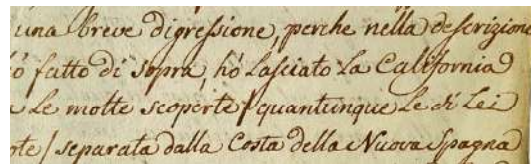 una breve digressione, perche nella descrizione
ò fatto di sopra, hò lasciato la California
Le molte scoperte / quantunque le di Lei
nte / separata dalla Costa della Nuova Spagna